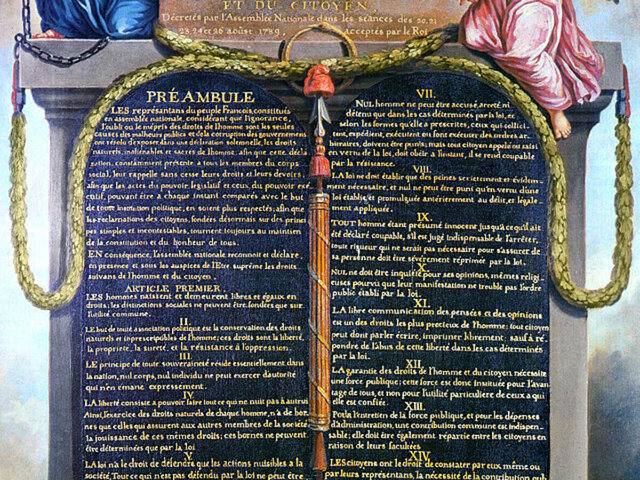 ET DU CITOYEN
Décretés par l'Assemblée Nationale dans les séances des 20, 21
23, 24 et 26 août 1789, acceptés par le Roi
PRÉAMBULE
LES représentans du peuple François, constitués
en assemblée nationale, considérant que l'ignorance,
l'oubli ou le mépris des droits de l'homme sont les seules
causes des malheurs publics et de la corruption des gouvernemens
ont résolu d'exposer dans une déclaration solemnelle, les droits
naturels, inaliénables et sacrés de l'homme, afin que cette décla
ration, constamment présente à tous les membres du corps
social, leur rappelle sans cesse leurs droits et leurs devoirs
afin que les actes du pouvoir législatif et ceux du pouvoir exé
cutif, pouvant être à chaque instant comparés avec le but
de toute institution politique, en soient plus respectés; afin que
les réclamations des citoyens, fondées désormais sur des prin
cipes simples et incontestables, tournent toujours au maintien
de la constitution et du bonheur de tous.
EN conséquence, l'assemblée nationale reconnoit et déclare,
en présence et sous les auspices de l'Etre suprême les droits
suivans de l'homme et du citoyen.
ARTICLE PREMIER.
LES hommes naissent et demeurent libres et égaux en
droits; les distinctions sociales ne peuvent être fondées que sur
l'utilité commune.
II.
LE but de toute association politique est la conservation des droits
naturels et imprescriptibles de l'homme; ces droits sont la liberté,
la propriété, la sureté, et la résistance à l'oppression.
III.
LE principe de toute souveraineté réside essentiellement dans
la nation, nul corps, nul individu ne peut exercer d'autorité
qui n'en émane expressément.
IV.
LA liberté consiste à pouvoir faire tout ce qui ne nuit pas à autrui
Ainsi, l'exercice des droits naturels de chaque homme, n'a de bor
nes que celles qui assurent aux autres membres de la société
la jouissance de ces mêmes droits; ces bornes ne peuvent
être déterminées que par la loi
V.
LA loi n'a le droit de défendre que les actions nuisibles à la
société. Tout ce qui n'est pas défendu par la loi ne peut être
VII.
NUL homme ne peut être accusé, arreté, ni
détenu que dans les cas déterminés par la loi, et
selon les formes qu'elle a prescrites, ceux qui sollici
tent, expédient, exécutent ou font exécuter des ordres ar
bitraires, doivent être punis; mais tout citoyen appelé ou saisi
en vertu de la loi, doit obéir à l'instant, il se rend coupable
par la résistance.
VIII.
LA loi ne doit établir que des peines strictement et évidem
ment nécessaire, et nul ne peut être puni qu'en vertu d'une
loi établie et promulguée antérieurement au délit, et légale
ment appliquée.
IX.
TOUT homme étant présumé innocent jusqu'à ce qu'il ait
été déclaré coupable, s'il est jugé indispensable de l'arrêter,
toute rigueur qui ne serait pas nécessaire pour s'assurer de
sa personne doit être sévèrement réprimée par la loi.
X.
NUL ne doit être inquiété pour ses opinions, mêmes religi
euses pourvu que leur manifestation ne trouble pas l'ordre
public établi par la loi.
XI.
LA libre communication des pensées et des opinions
est un des droits les plus precieux de l'homme; tout citoyen
peut donc parler écrire, imprimer librement; sauf à ré
pondre de l'abus de cette liberté dans les cas déterminés
par la loi.
XII.
LA garantie des droits de l'homme et du citoyen nécessite
une force publique; cette force est donc instituée pour l'avan
tage de tous, et non pour l'utilité particuliere de ceux a qui
elle est confiée.
XIII.
POUR l'entretien de la force publique, et pour les dépenses
d'administration, une contribution commune est indispen
sable; elle doit être également répartie entre les citoyens en
raison de leurs facultées
XIV.
LES citoyens ont le droit de constater par eux même ou
par leurs représentans, la nécessité de la contribution pub